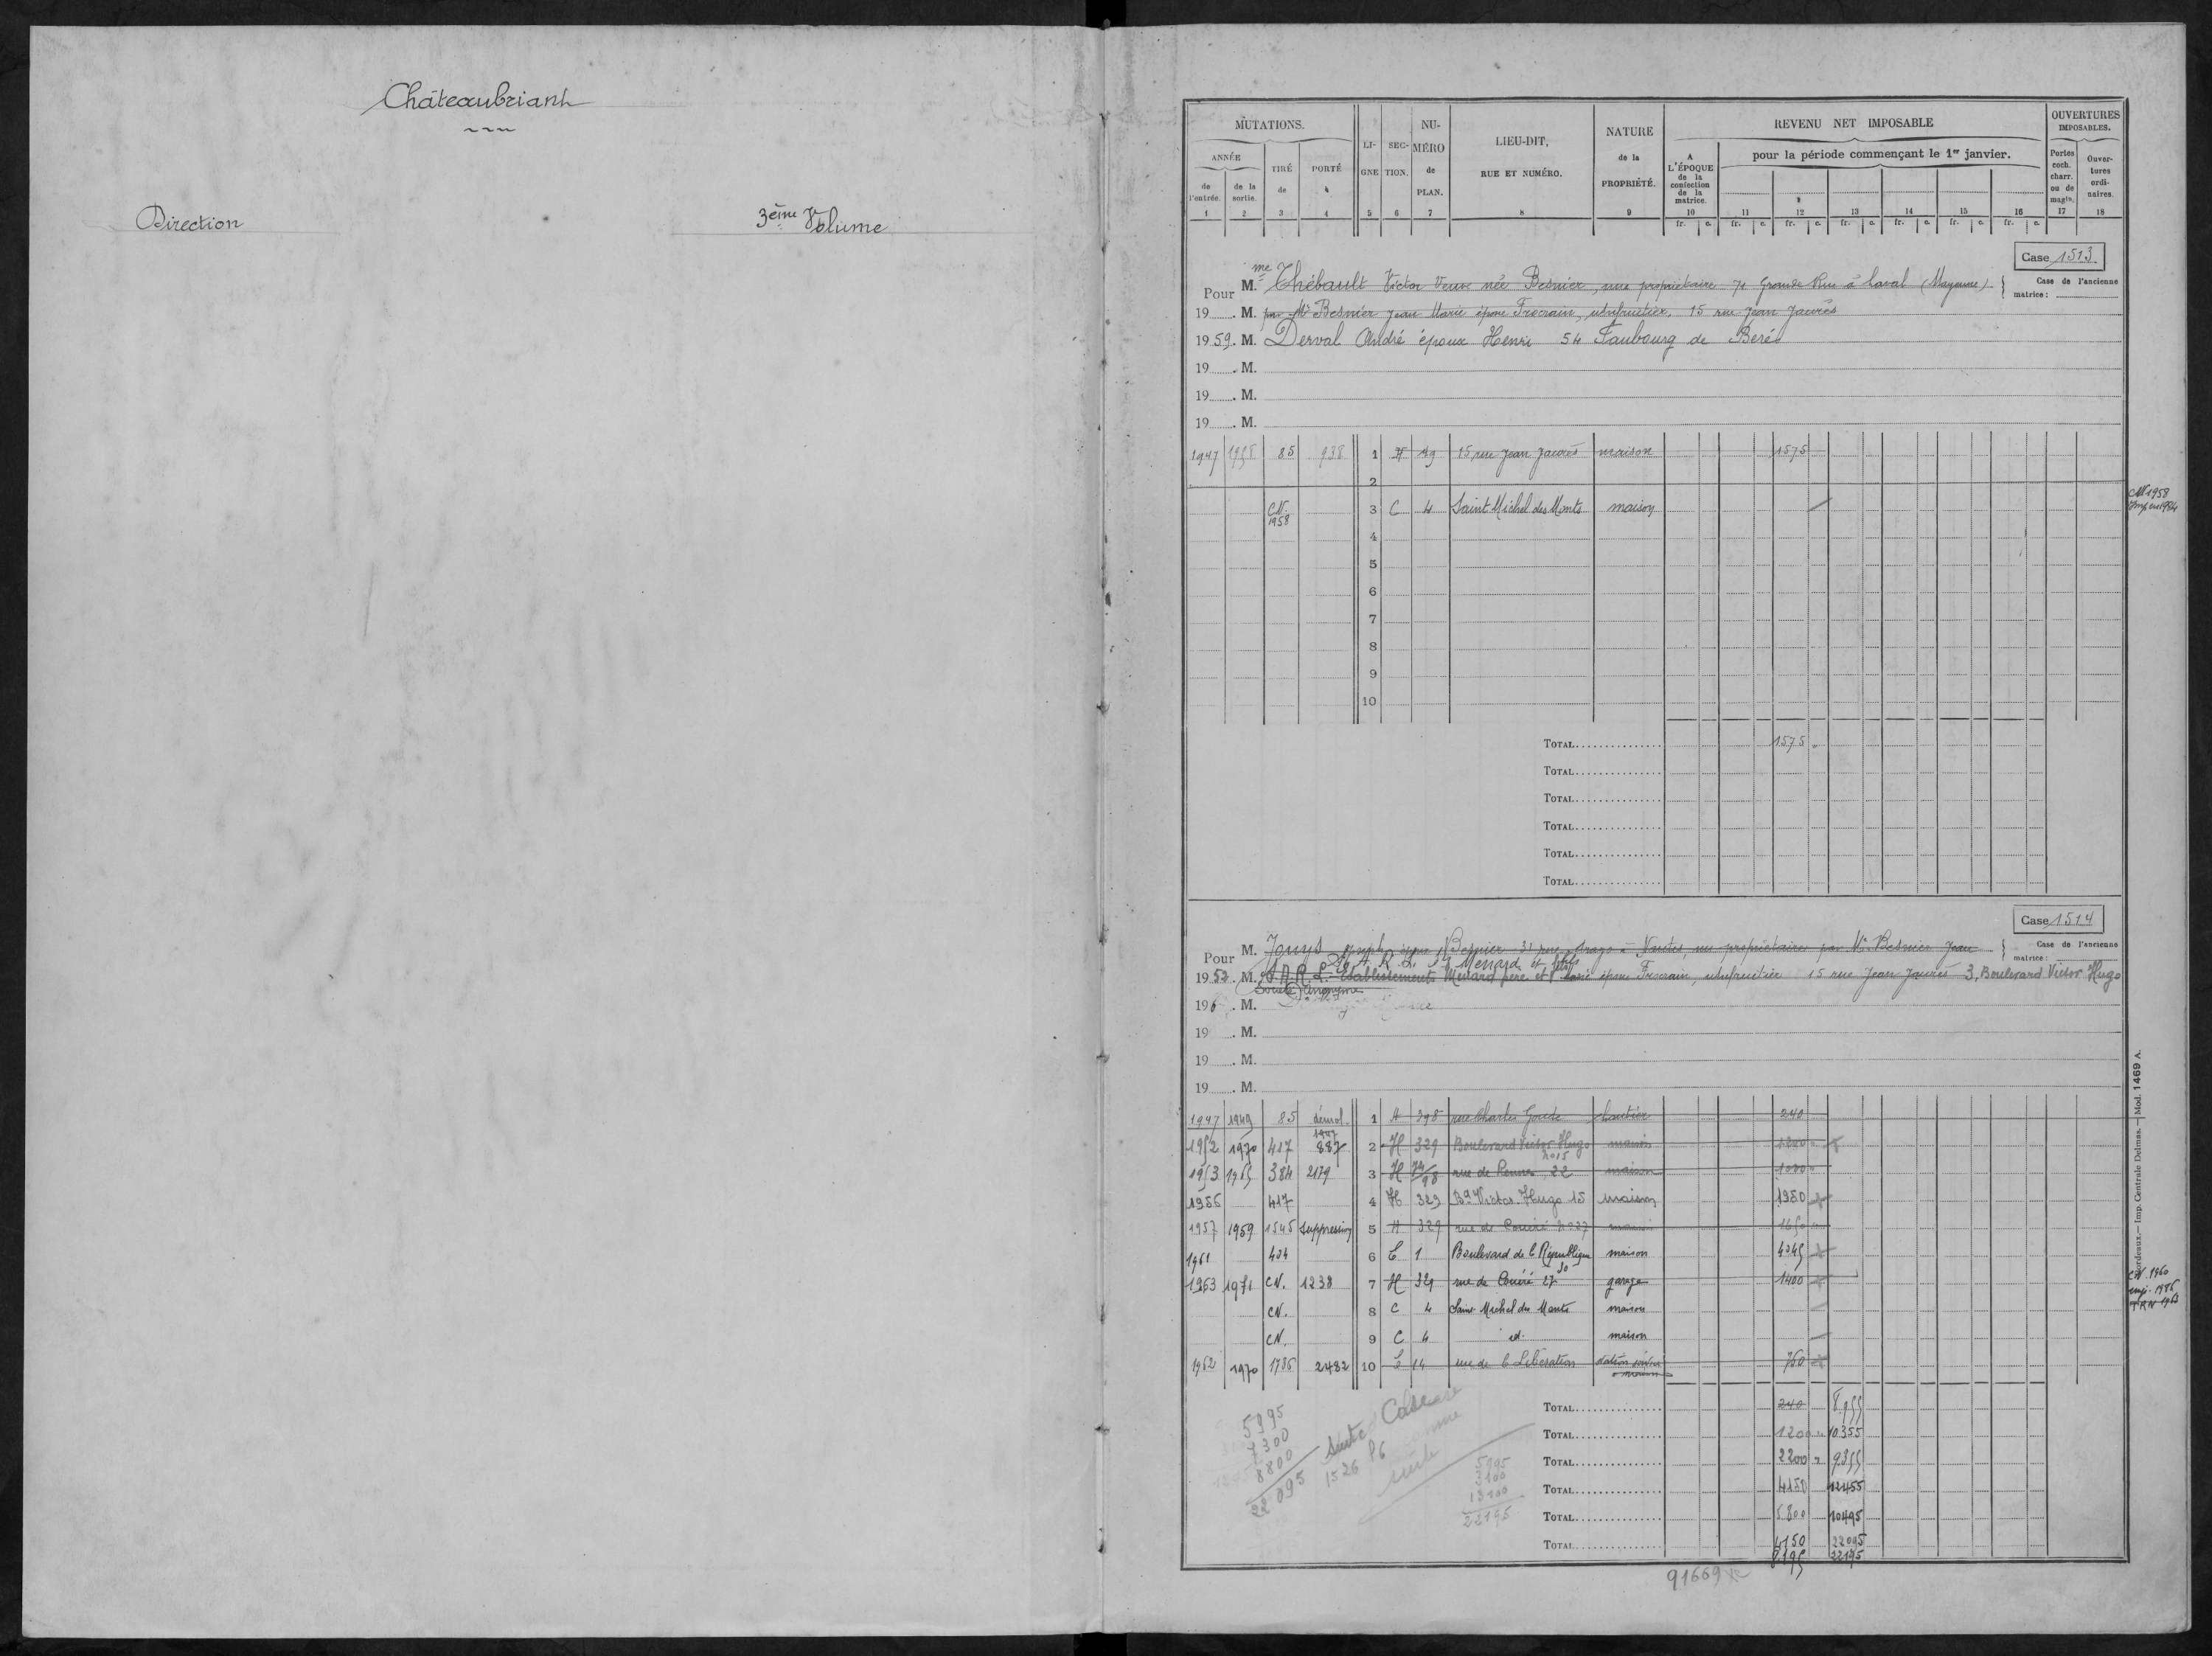 Châteaubriant
Direction
3ème Volume
MUTATIONS.
ANNÉE
de l'entrée.
de la sortie.
TIRÉ de
PORTÉ à
LI-GNE
SEC-TION.
NU-MÉRO de PLAN.
LIEU-DIT, RUE ET NUMÉRO.
NATURE de la PROPRIÉTÉ.
REVENU NET IMPOSABLE
A L'ÉPOQUE de la confection de la matrice.
pour la période commençant le 1er janvier.
OUVERTURES IMPOSABLES.
Portes coch. charr. ou de magin.
Ouver-tures ordi-naires.
1 2 3 4 5 6 7 8 9 10 11 12 13 14 15 16 17 18
fr. c. fr. c. fr. c. fr. c. fr. c. fr. c. fr. c.
Case 1513
Pour M.me Thébault Victor Veuve née Besnier, nue propriétaire 74 Grande Rue à Laval (Mayenne)
Case de l'ancienne matrice :
19 M. par Mr Besnier Jean Marie époux Frocrain, usufruitier. 15 rue Jean Jaurès
1959. M. Derval André époux Henri 54 Faubourg de Béré
19 . M.
19 . M.
19 . M.
1947 1958 85 938 1 H 49 15 rue Jean Jaurès maison 1575
2
CN. 1958 3 C 4 Saint Michel des Monts maison
CN 1958
4
5
6
7
8
9
10
TOTAL 1575
TOTAL
TOTAL
TOTAL
TOTAL
TOTAL
Case 1514
Pour M. Jouys Joseph époux Besnier 31 rue Arago à Nantes, nu propriétaire par Mr Besnier Jean
Case de l'ancienne matrice :
S. A. R. L. Menard et fils
1952. M. S.A.R.L. Etablissements Menard père et fils Marie époux Frocrain, usufruitier 15 rue Jean Jaurès 3, Boulevard Victor Hugo
Société Anonyme
196 . M.
19 . M.
19 . M.
19 . M.
1947 1949 85 démol. 1947 1 H 398 rue Charles Goude chantier 240
1952 1970 417 887 2 H 329 Boulevard Victor Hugo no 15 maison 1200
1953 1965 384 2179 3 H 74/98 rue de Rennes, 22 maison 1000
1956 417 4 H 329 Bd Victor Hugo 15 maison 1950
1957 1959 1545 Suppression 5 H 329 rue de Couëré no 27 maison 1650
1961 434 6 E 1 Boulevard de la République 30 maison 4045
1963 1971 CN. 1238 7 H 329 rue de Couëré 27 garage 1400
CN. 8 C 4 Saint Michel des Monts maison
CN. 9 C 4 id. maison
1962 1970 1786 2482 10 E 14 rue de la Libération station service 760
CN. 1960
TOTAL 240 8.955
TOTAL 1200 10355
TOTAL 2200 9355
TOTAL 4150 12455
TOTAL 5800 20495
TOTAL 4150 22095
8195 22195
5995
7300
8800
22095
suite Case
1526
suite
5995
3100
13100
22195
91669
Bordeaux.— Imp. Centrale Delmas. — Mod. 1469 A.